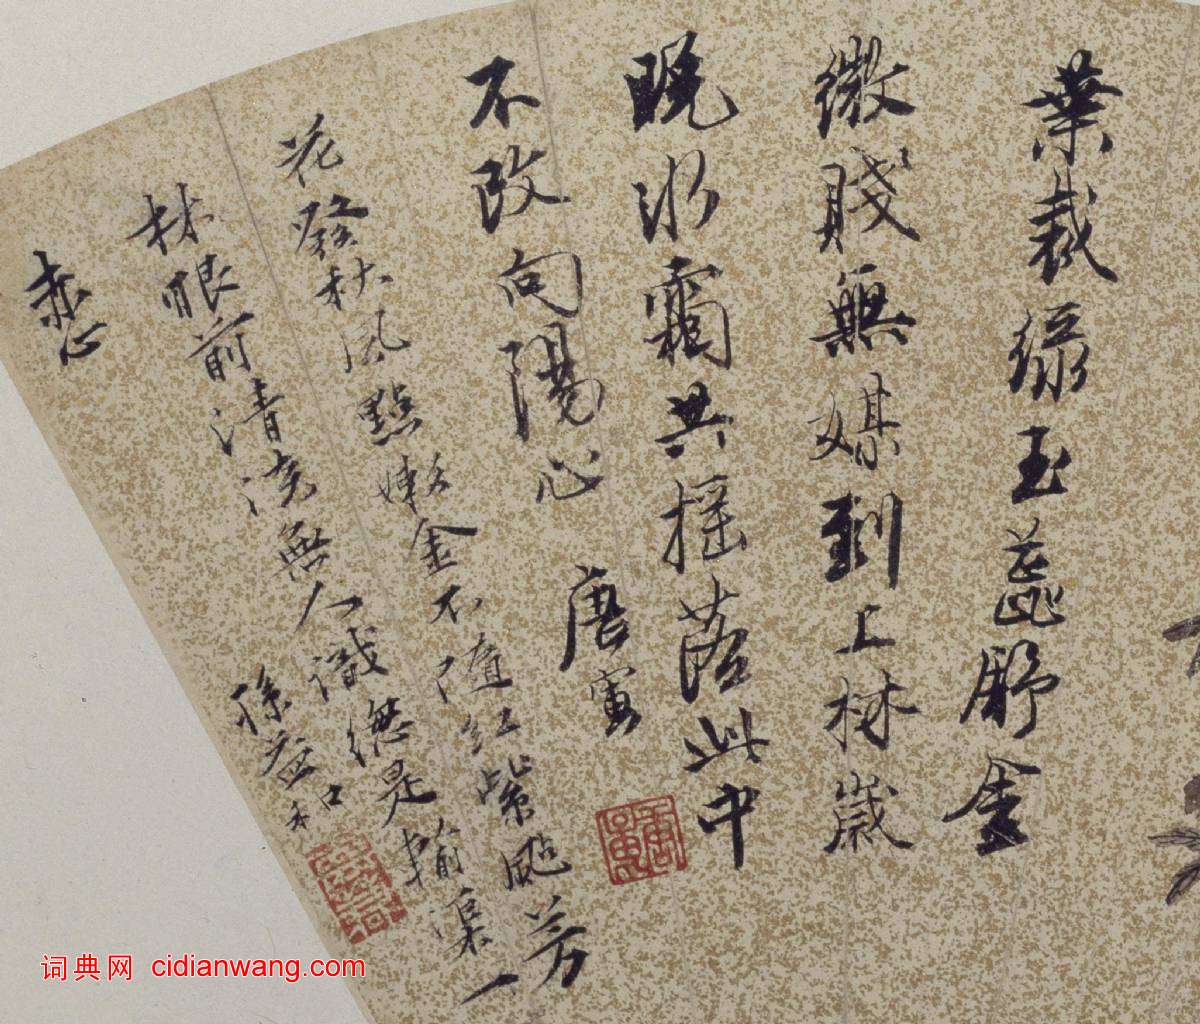 葉裁綠玉蕊舒金
微賤無媒到上林歲
晚冰霜共搖落此中
不改向陽心
唐寅
花發秋風點嫩金不隨紅紫颭芳
林眼前清淺無人識總是輸渠一
赤心
孫益和
唐寅
词典网 cidianwang.com